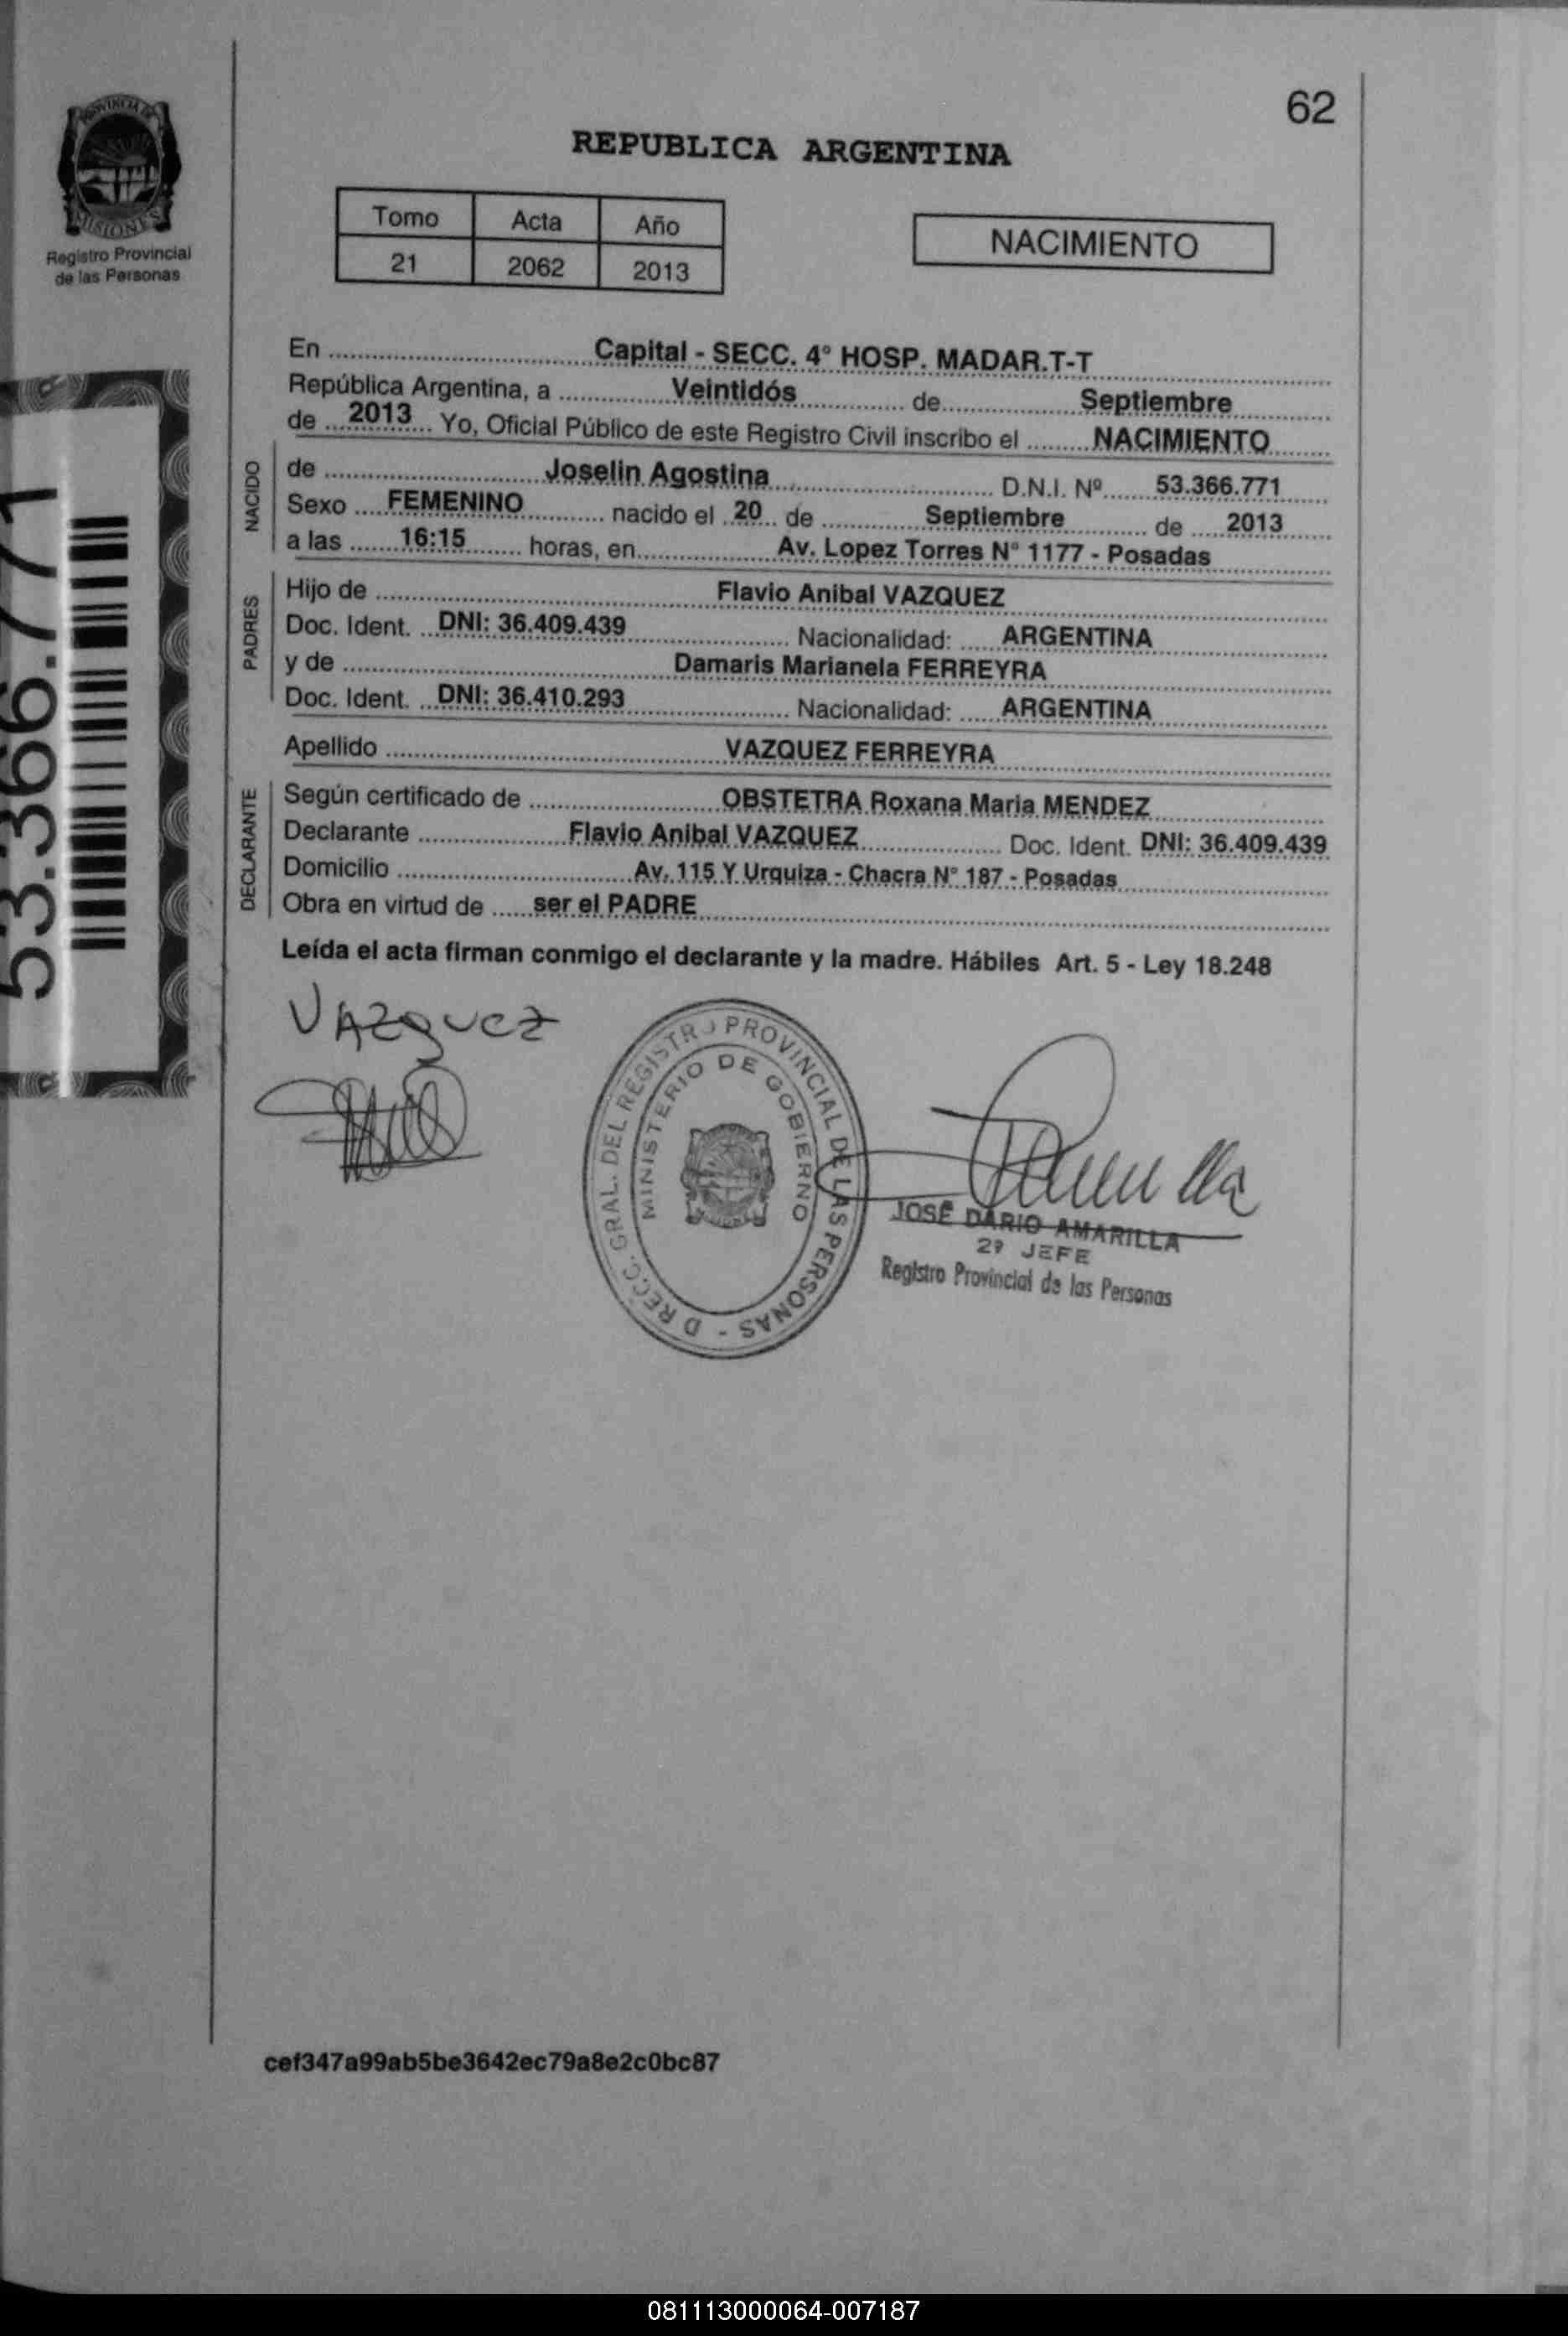 62
PROVINCIA DE
MISIONES
Registro Provincial
de las Personas
REPUBLICA ARGENTINA
Tomo Acta Año
21 2062 2013
NACIMIENTO
53.366.771
En Capital - SECC. 4° HOSP. MADAR.T-T
República Argentina, a Veintidós de Septiembre
de 2013 Yo, Oficial Público de este Registro Civil inscribo el NACIMIENTO
NACIDO
de Joselin Agostina D.N.I. Nº 53.366.771
Sexo FEMENINO nacido el 20 de Septiembre de 2013
a las 16:15 horas, en Av. Lopez Torres N° 1177 - Posadas
PADRES
Hijo de Flavio Anibal VAZQUEZ
Doc. Ident. DNI: 36.409.439 Nacionalidad: ARGENTINA
y de Damaris Marianela FERREYRA
Doc. Ident. DNI: 36.410.293 Nacionalidad: ARGENTINA
Apellido VAZQUEZ FERREYRA
DECLARANTE
Según certificado de OBSTETRA Roxana Maria MENDEZ
Declarante Flavio Anibal VAZQUEZ Doc. Ident. DNI: 36.409.439
Domicilio Av. 115 Y Urquiza - Chacra N° 187 - Posadas
Obra en virtud de ser el PADRE
Leída el acta firman conmigo el declarante y la madre. Hábiles Art. 5 - Ley 18.248
VAzquez
D RECC. GRAL. DEL REGISTRO PROVINCIAL DE LAS PERSONAS -
MINISTERIO DE GOBIERNO
JOSE DARIO AMARILLA
2º JEFE
Registro Provincial de las Personas
cef347a99ab5be3642ec79a8e2c0bc87
081113000064-007187